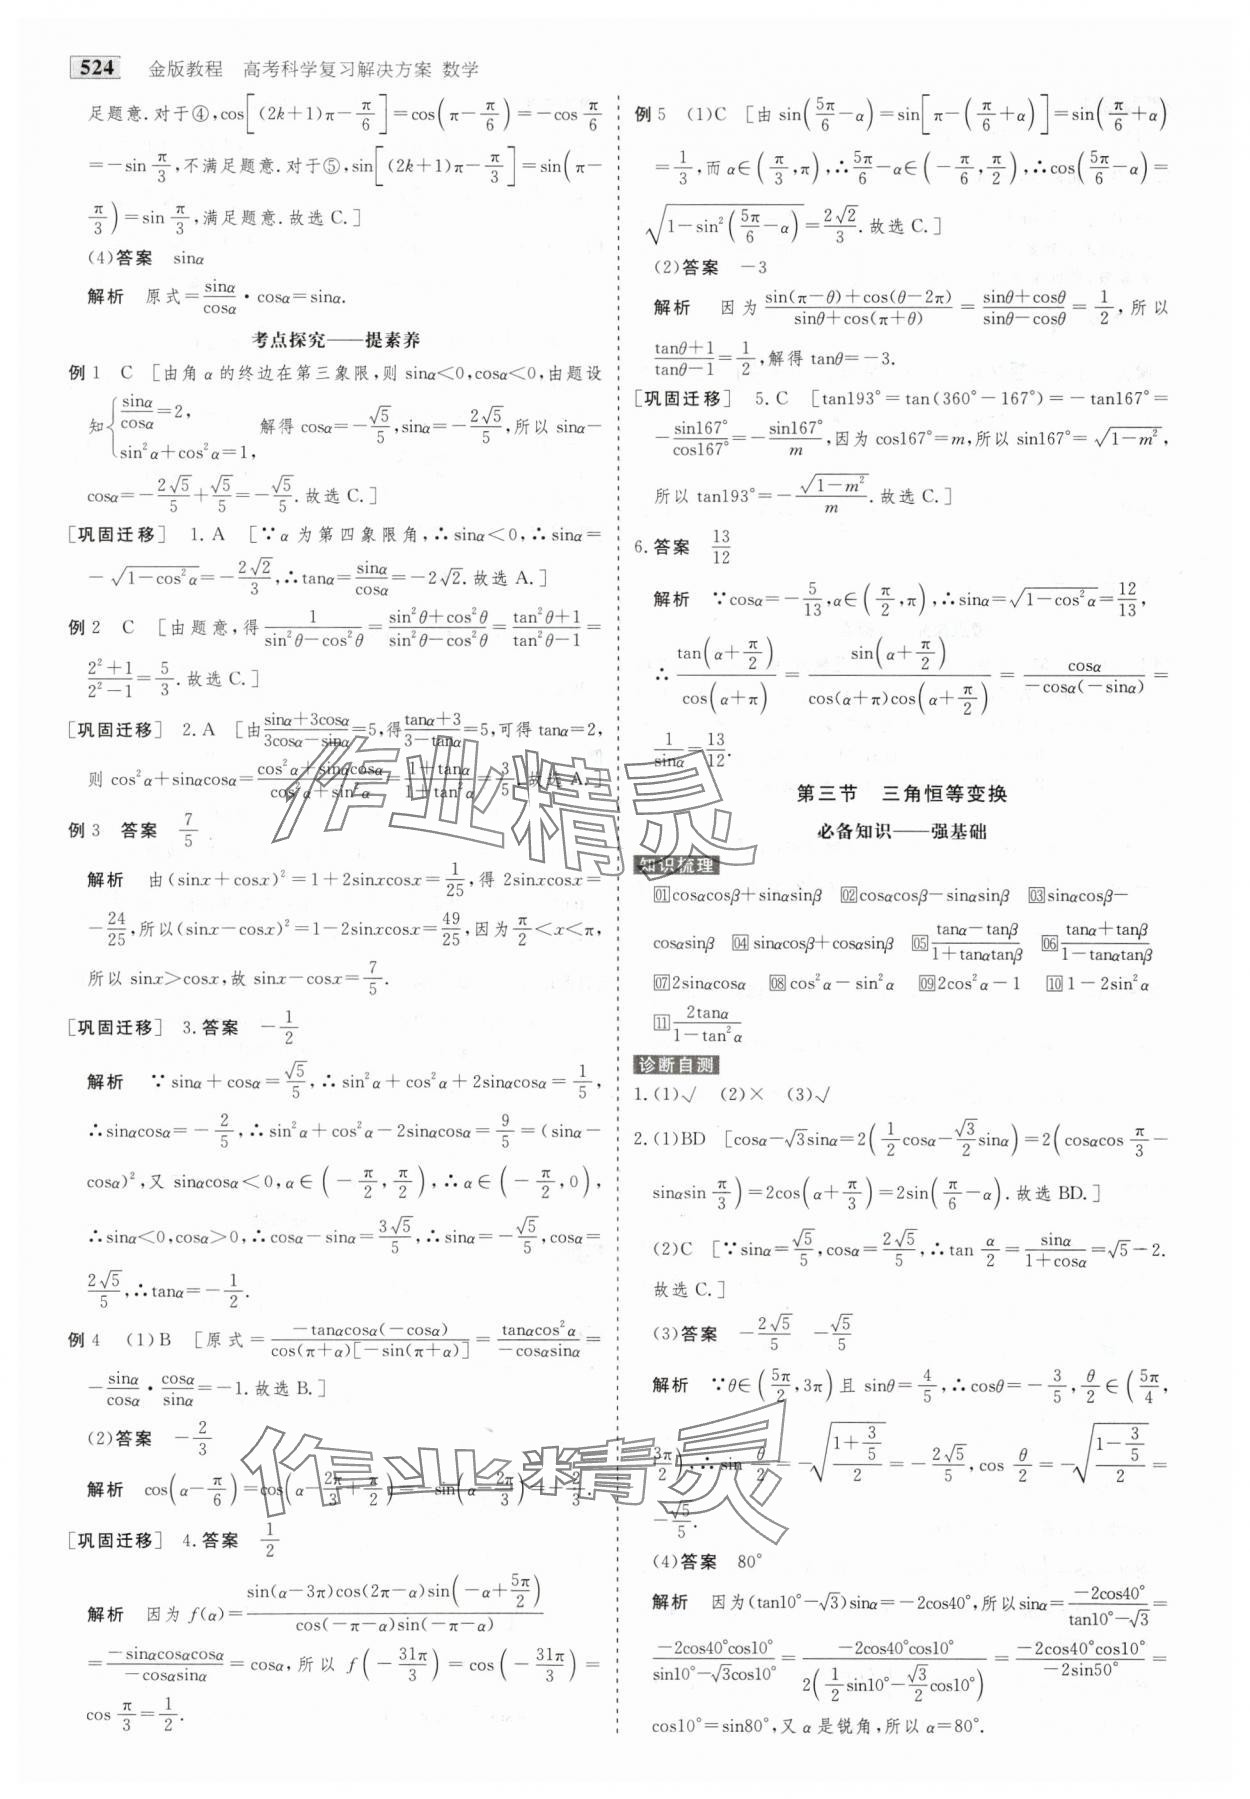 524 金版教程 高考科学复习解决方案 数学
足题意.对于④,cos[(2k+1)π-π/6]=cos(π-π/6)=-cos π/6
=-sin π/3,不满足题意.对于⑤,sin[(2k+1)π-π/3]=sin(π-
π/3)=sin π/3,满足题意.故选 C.]
(4)答案 sinα
解析 原式=sinα/cosα·cosα=sinα.
考点探究——提素养
例 1 C [由角 α 的终边在第三象限,则 sinα<0,cosα<0,由题设
知{sinα/cosα=2, sin²α+cos²α=1, 解得 cosα=-√5/5,sinα=-2√5/5,所以 sinα-
cosα=-2√5/5+√5/5=-√5/5.故选 C.]
[巩固迁移] 1. A [∵α 为第四象限角,∴sinα<0,∴sinα=
-√(1-cos²α)=-2√2/3,∴tanα=sinα/cosα=-2√2.故选 A.]
例 2 C [由题意,得 1/(sin²θ-cos²θ)=(sin²θ+cos²θ)/(sin²θ-cos²θ)=(tan²θ+1)/(tan²θ-1)=
(2²+1)/(2²-1)=5/3.故选 C.]
[巩固迁移] 2. A [由(sinα+3cosα)/(3cosα-sinα)=5,得(tanα+3)/(3-tanα)=5,可得 tanα=2,
则 cos²α+sinαcosα=(cos²α+sinαcosα)/(cos²α+sin²α)=(1+tanα)/(1+tan²α)=3/5.故选 A.]
例 3 答案 7/5
解析 由(sinx+cosx)²=1+2sinxcosx=1/25,得 2sinxcosx=
-24/25,所以(sinx-cosx)²=1-2sinxcosx=49/25,因为 π/2<x<π,
所以 sinx>cosx,故 sinx-cosx=7/5.
[巩固迁移] 3. 答案 -1/2
解析 ∵sinα+cosα=√5/5,∴sin²α+cos²α+2sinαcosα=1/5,
∴sinαcosα=-2/5,∴sin²α+cos²α-2sinαcosα=9/5=(sinα-
cosα)²,又 sinαcosα<0,α∈(-π/2,π/2),∴α∈(-π/2,0),
∴sinα<0,cosα>0,∴cosα-sinα=3√5/5,∴sinα=-√5/5,cosα=
2√5/5,∴tanα=-1/2.
例 4 (1)B [原式=-tanαcosα(-cosα)/(cos(π+α)[-sin(π+α)])=tanαcos²α/(-cosαsinα)=
-sinα/cosα·cosα/sinα=-1.故选 B.]
(2)答案 -2/3
解析 cos(α-π/6)=cos(α-2π/3+π/2)=-sin(α-2π/3)=-2/3.
[巩固迁移] 4. 答案 1/2
解析 因为 f(α)=sin(α-3π)cos(2π-α)sin(-α+5π/2)/(cos(-π-α)sin(-π-α))
=-sinαcosαcosα/(-cosαsinα)=cosα,所以 f(-31π/3)=cos(-31π/3)=
cos π/3=1/2.
例 5 (1)C [由 sin(5π/6-α)=sin[π-(π/6+α)]=sin(π/6+α)
=1/3,而 α∈(π/3,π),∴5π/6-α∈(-π/6,π/2),∴cos(5π/6-α)=
√(1-sin²(5π/6-α))=2√2/3.故选 C.]
(2)答案 -3
解析 因为(sin(π-θ)+cos(θ-2π))/(sinθ+cos(π+θ))=(sinθ+cosθ)/(sinθ-cosθ)=1/2,所以
(tanθ+1)/(tanθ-1)=1/2,解得 tanθ=-3.
[巩固迁移] 5. C [tan193°=tan(360°-167°)=-tan167°=
-sin167°/cos167°=-sin167°/m,因为 cos167°=m,所以 sin167°=√(1-m²),
所以 tan193°=-√(1-m²)/m.故选 C.]
6. 答案 13/12
解析 ∵cosα=-5/13,α∈(π/2,π),∴sinα=√(1-cos²α)=12/13,
∴tan(α+π/2)/cos(α+π)=sin(α+π/2)/(cos(α+π)cos(α+π/2))=cosα/(-cosα(-sinα))=
1/sinα=13/12.
第三节 三角恒等变换
必备知识——强基础
知识梳理
01 cosαcosβ+sinαsinβ 02 cosαcosβ-sinαsinβ 03 sinαcosβ-
cosαsinβ 04 sinαcosβ+cosαsinβ 05 (tanα-tanβ)/(1+tanαtanβ) 06 (tanα+tanβ)/(1-tanαtanβ)
07 2sinαcosα 08 cos²α-sin²α 09 2cos²α-1 10 1-2sin²α
11 2tanα/(1-tan²α)
诊断自测
1. (1)√ (2)× (3)√
2. (1)BD [cosα-√3sinα=2(1/2cosα-√3/2sinα)=2(cosαcos π/3-
sinαsin π/3)=2cos(α+π/3)=2sin(π/6-α).故选 BD.]
(2)C [∵sinα=√5/5,cosα=2√5/5,∴tan α/2=sinα/(1+cosα)=√5-2.
故选 C.]
(3)答案 -2√5/5 -√5/5
解析 ∵θ∈(5π/2,3π)且 sinθ=4/5,∴cosθ=-3/5,θ/2∈(5π/4,
3π/2),∴sin θ/2=-√((1+3/5)/2)=-2√5/5,cos θ/2=-√((1-3/5)/2)=
-√5/5.
(4)答案 80°
解析 因为(tan10°-√3)sinα=-2cos40°,所以sinα=-2cos40°/(tan10°-√3)=
-2cos40°cos10°/(sin10°-√3cos10°)=-2cos40°cos10°/(2(1/2sin10°-√3/2cos10°))=-2cos40°cos10°/(-2sin50°)=
cos10°=sin80°,又 α 是锐角,所以 α=80°.
作业精灵
作业精灵